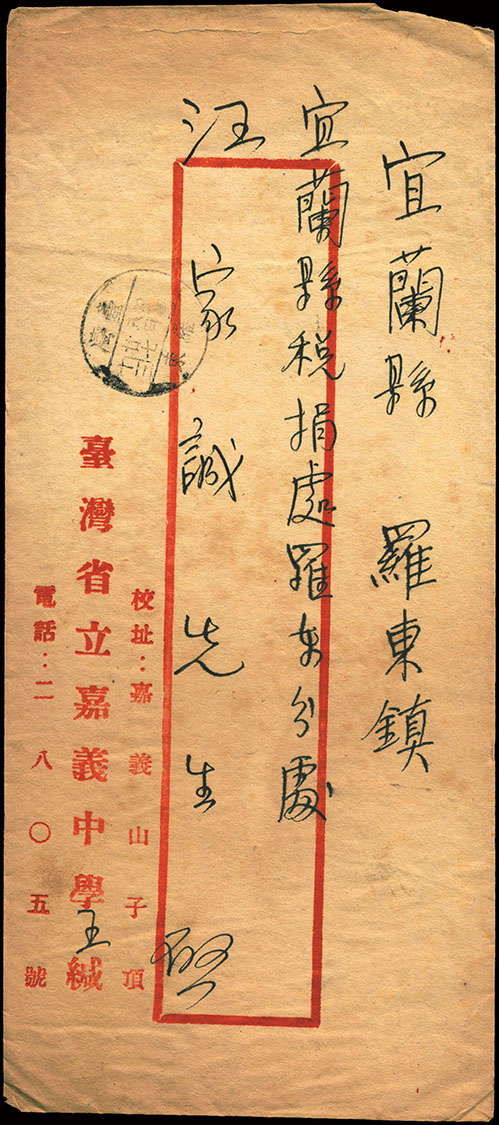 宜蘭縣 羅東鎮
宜蘭縣稅捐處羅東分處
汪家誠先生 啟
校址：嘉義山子頂
臺灣省立嘉義中學王緘
電話：二八〇五號